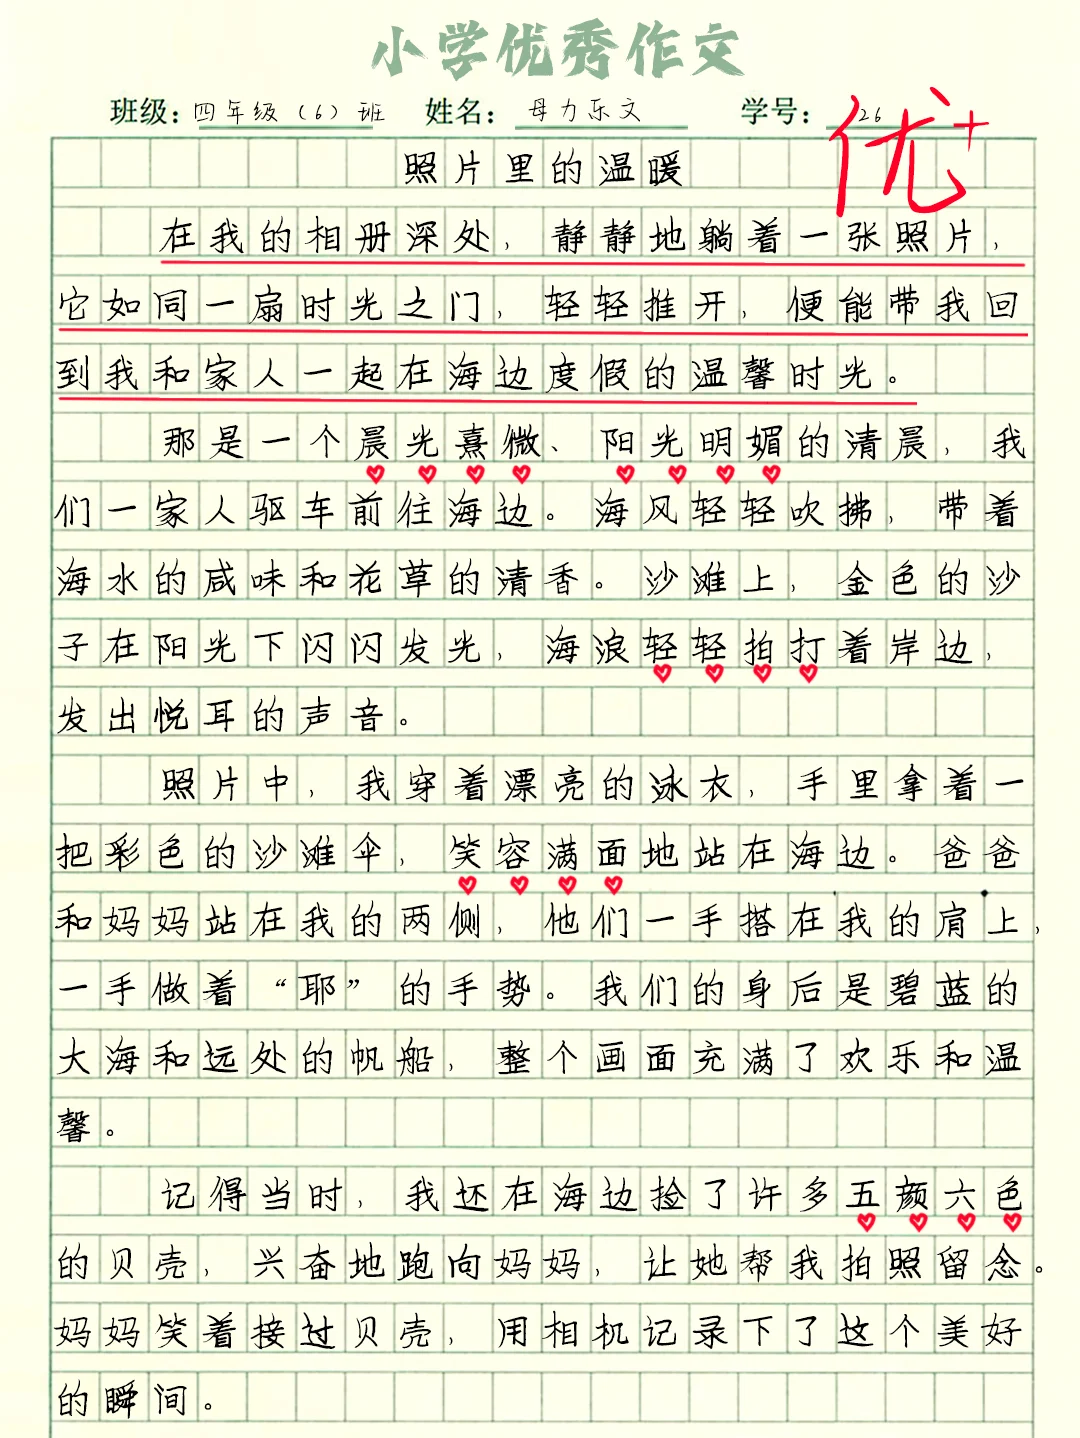 小学优秀作文
班级：四年级（6）班 姓名：母力乐文 学号：26
优+
照片里的温暖
在我的相册深处，静静地躺着一张照片，
它如同一扇时光之门，轻轻推开，便能带我回
到我和家人一起在海边度假的温馨时光。
那是一个晨光熹微、阳光明媚的清晨，我
们一家人驱车前往海边。海风轻轻吹拂，带着
海水的咸味和花草的清香。沙滩上，金色的沙
子在阳光下闪闪发光，海浪轻轻拍打着岸边，
发出悦耳的声音。
照片中，我穿着漂亮的泳衣，手里拿着一
把彩色的沙滩伞，笑容满面地站在海边。爸爸
和妈妈站在我的两侧，他们一手搭在我的肩上，
一手做着“耶”的手势。我们的身后是碧蓝的
大海和远处的帆船，整个画面充满了欢乐和温
馨。
记得当时，我还在海边捡了许多五颜六色
的贝壳，兴奋地跑向妈妈，让她帮我拍照留念。
妈妈笑着接过贝壳，用相机记录下了这个美好
的瞬间。